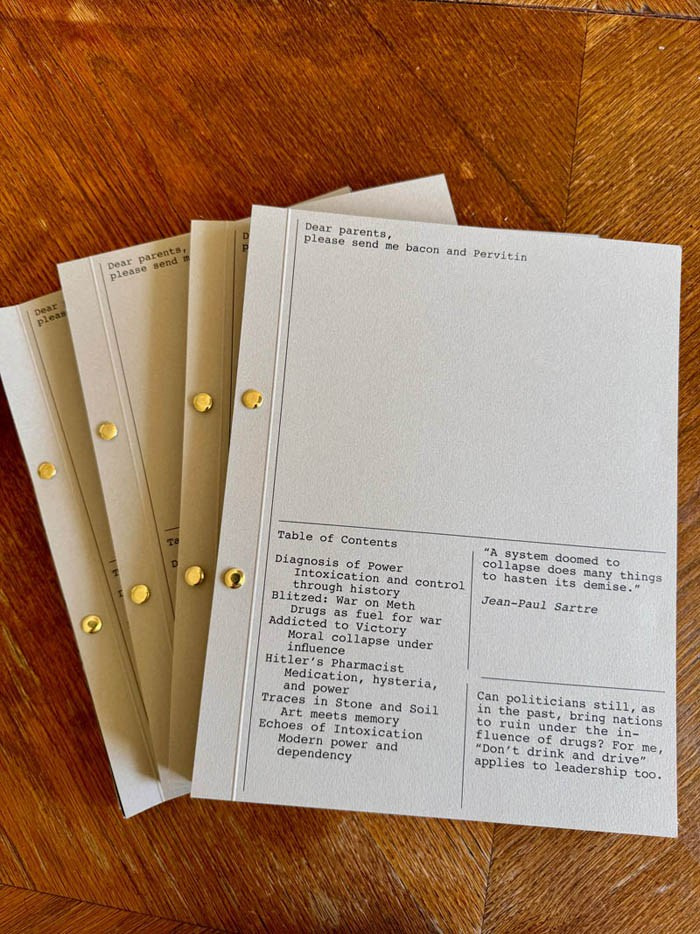 Dear parents,
please send me bacon and Pervitin
Table of Contents
Diagnosis of Power
Intoxication and control
through history
Blitzed: War on Meth
Drugs as fuel for war
Addicted to Victory
Moral collapse under
influence
Hitler's Pharmacist
Medication, hysteria,
and power
Traces in Stone and Soil
Art meets memory
Echoes of Intoxication
Modern power and
dependency
“A system doomed to
collapse does many things
to hasten its demise.”
Jean-Paul Sartre
Can politicians still, as
in the past, bring nations
to ruin under the in-
fluence of drugs? For me,
“Don't drink and drive”
applies to leadership too.
Dear parents,
please send m
Dear
pleas